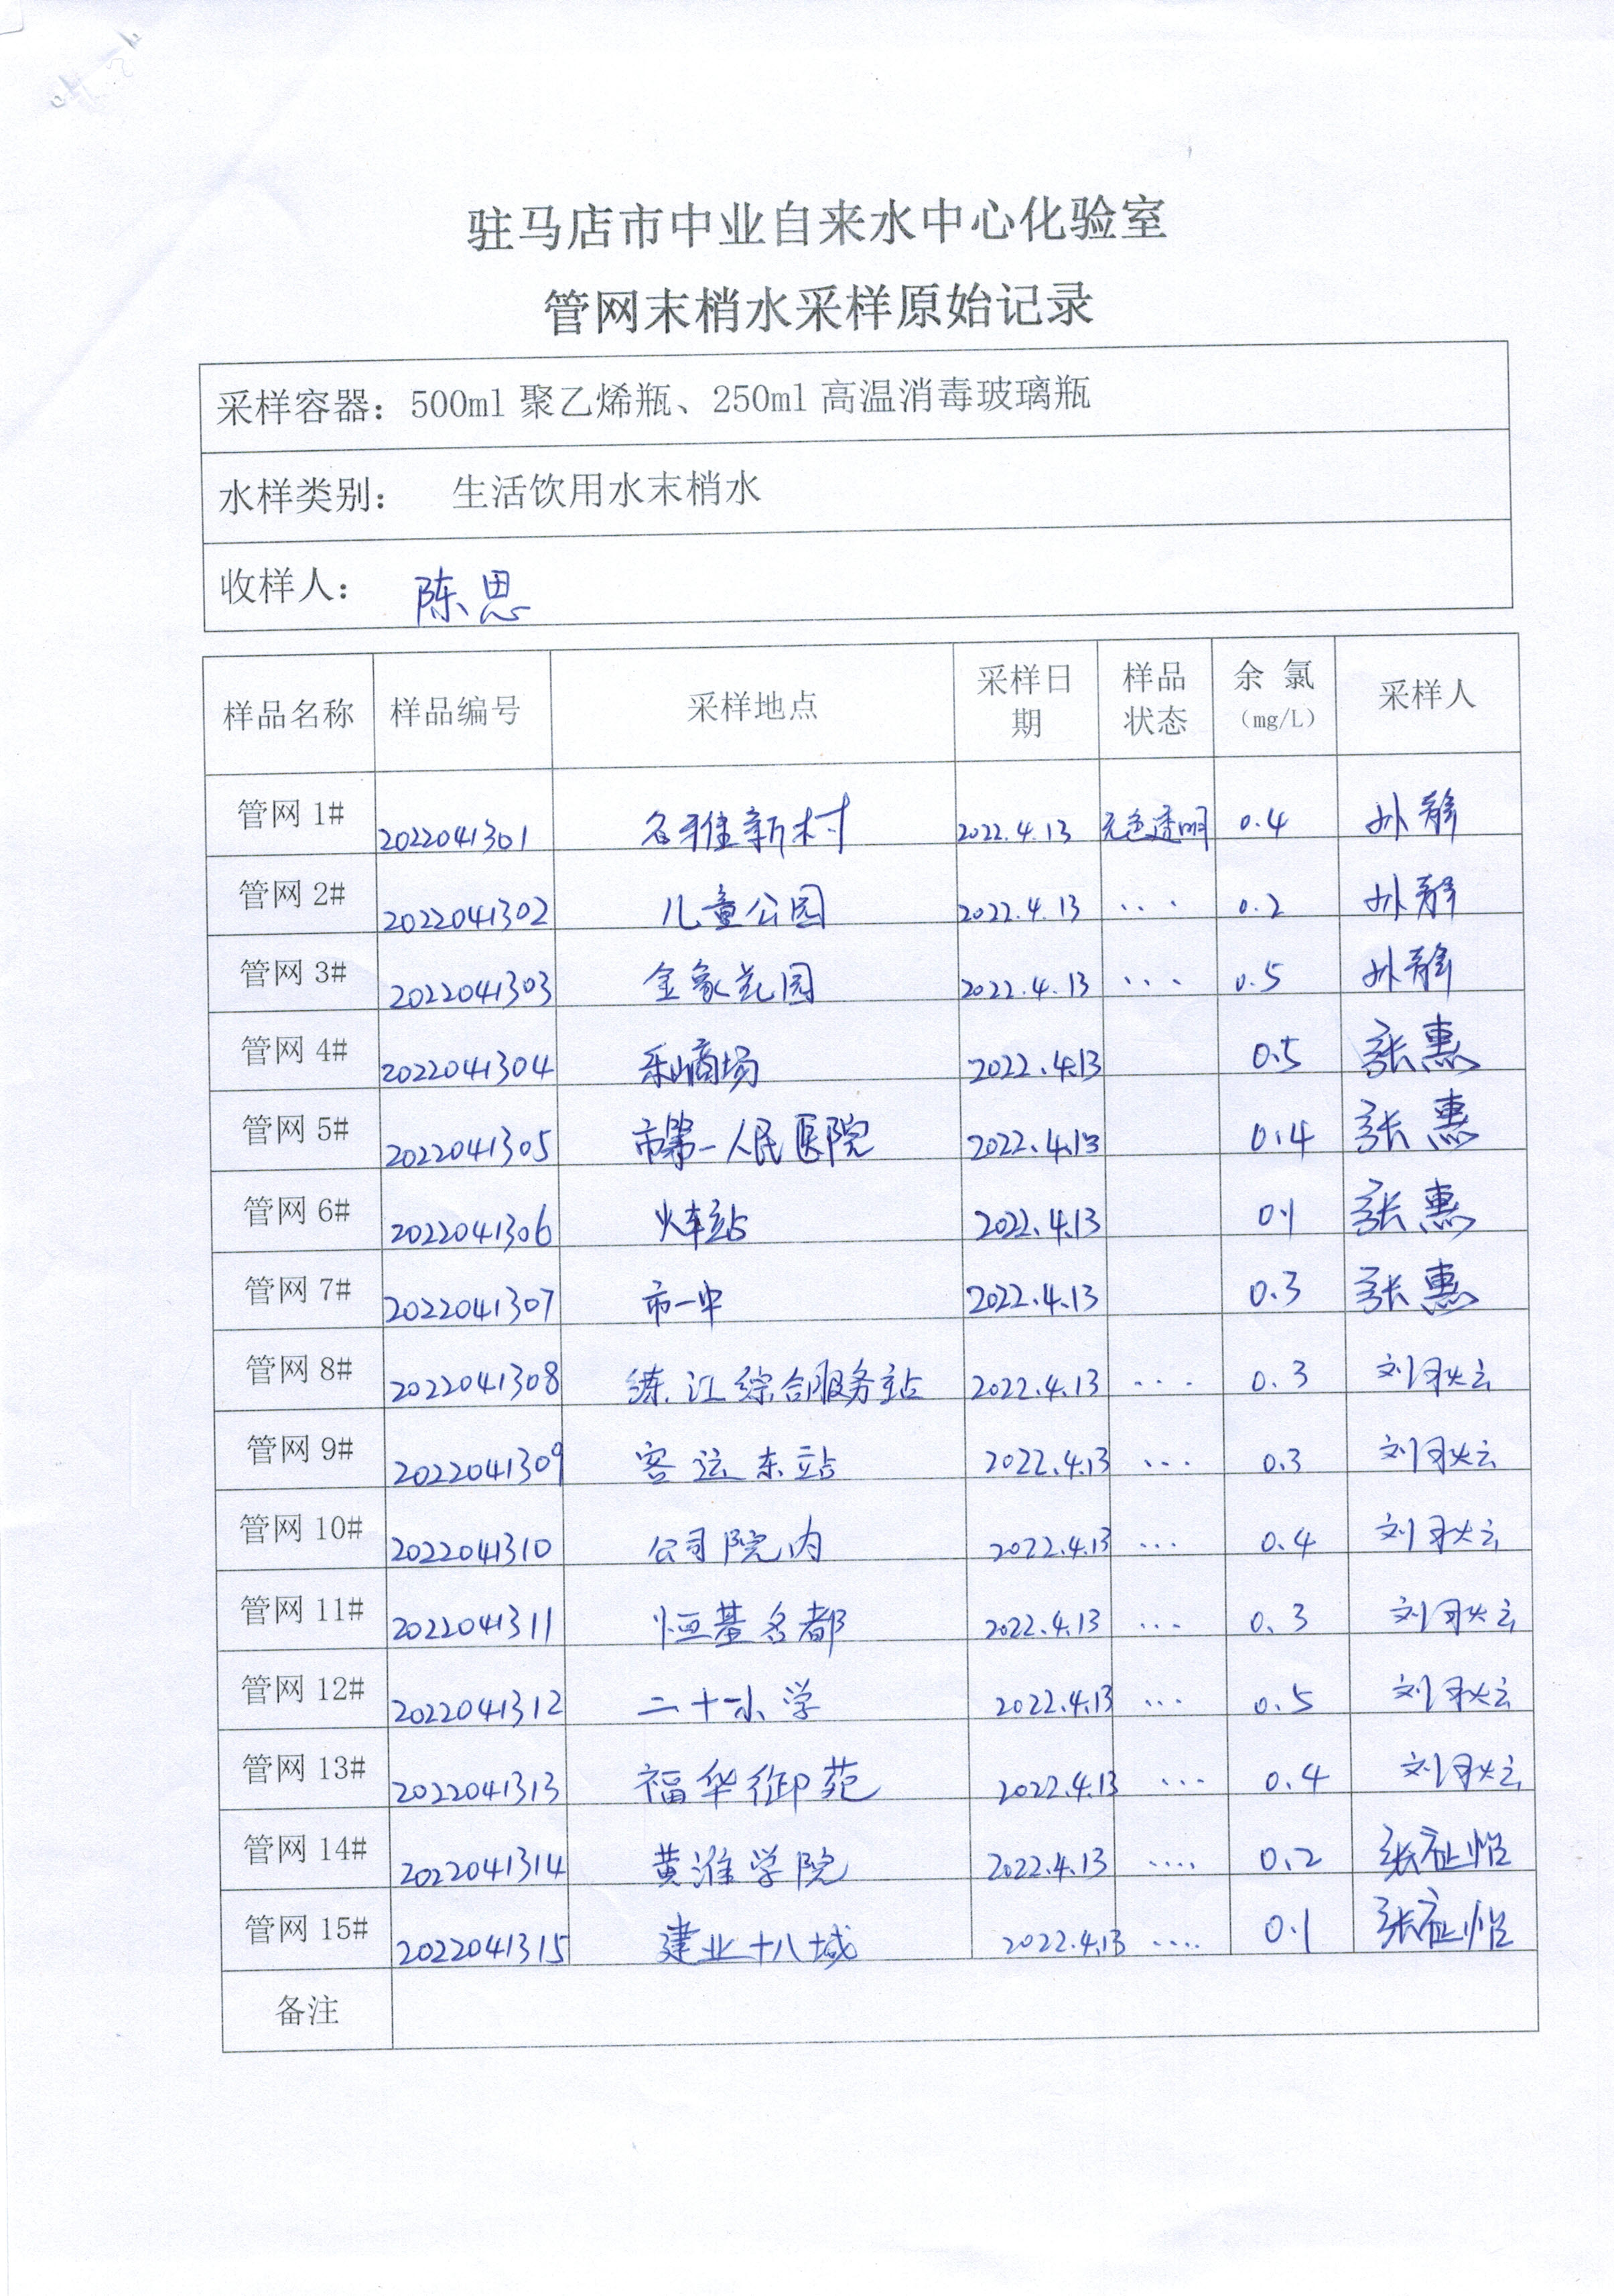 驻马店市中业自来水中心化验室
管网末梢水采样原始记录
采样容器：500ml 聚乙烯瓶、250ml 高温消毒玻璃瓶
水样类别： 生活饮用水末梢水
收样人： 陈思
样品名称 样品编号 采样地点 采样日期 样品状态 余氯（mg/L） 采样人
管网 1# 2022041301 名雅新村 2022.4.13 无色透明 0.4 孙静
管网 2# 2022041302 儿童公园 2022.4.13 ... 0.2 孙静
管网 3# 2022041303 金象花园 2022.4.13 ... 0.5 孙静
管网 4# 2022041304 乐山商场 2022.4.13 0.5 张惠
管网 5# 2022041305 市第一人民医院 2022.4.13 0.4 张惠
管网 6# 2022041306 火车站 2022.4.13 0.1 张惠
管网 7# 2022041307 市一中 2022.4.13 0.3 张惠
管网 8# 2022041308 练江综合服务站 2022.4.13 ... 0.3 刘
管网 9# 2022041309 客运东站 2022.4.13 ... 0.3 刘
管网 10# 2022041310 公司院内 2022.4.13 ... 0.4 刘
管网 11# 2022041311 恒基名都 2022.4.13 ... 0.3 刘
管网 12# 2022041312 二十小学 2022.4.13 ... 0.5 刘
管网 13# 2022041313 福华御苑 2022.4.13 ... 0.4 刘
管网 14# 2022041314 黄淮学院 2022.4.13 .... 0.2 张祉怡
管网 15# 2022041315 建业十八城 2022.4.13 .... 0.1 张祉怡
备注